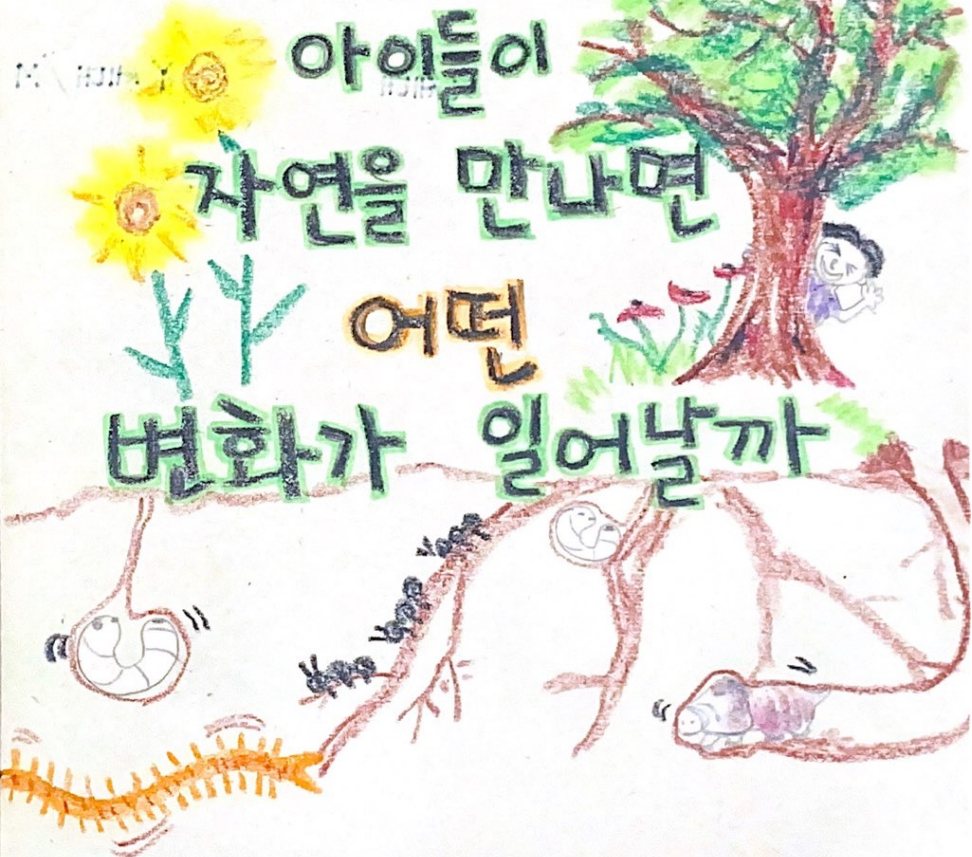 아이들이
자연을 만나면
어떤
변화가 일어날까